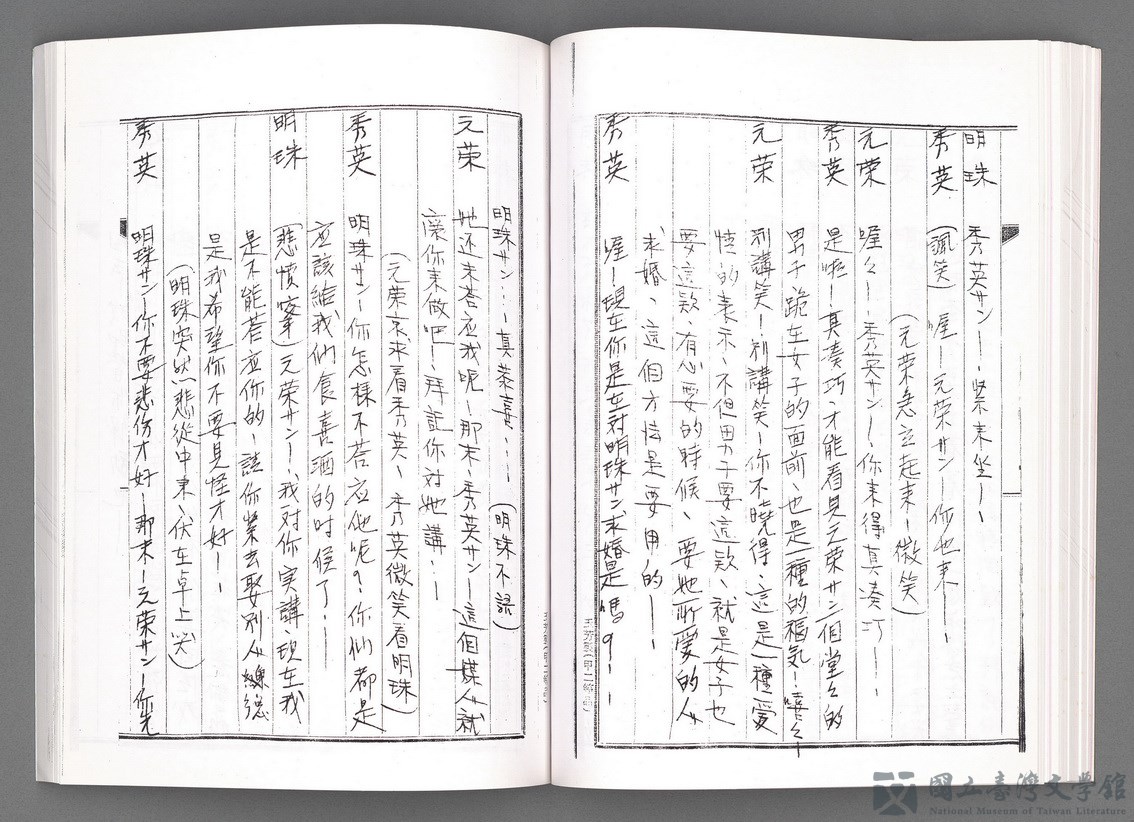 明珠　秀英サン——緊来坐——
秀英　（諷笑）喔——元荣サン——你也来——
（元荣急立起来——微笑）
元荣　喔々——秀英サン——你来得真凑巧——
秀英　是啦——真凑巧、才能看見元荣サン個堂々的
男子、跪在女子的面前、也是一種的福気——嘻々——
元荣　別講笑——別講笑——你不曉得、這是一種愛
情的表示、不但男子要這款、就是女子也
要這款、有心要的時候、要她所愛的人
求婚、這個方法是要用的——
秀英　喔——現在你是在対明珠サン求婚是嗎？——
明珠サン……真恭喜……（明珠不語）
元荣　她还未荅应我呢——那末、秀英サン——這個媒人就
你来做吧——拜託你对她講——
（元荣 看秀英、秀英微笑看明珠）
秀英　明珠サン——你怎様不荅应他呢？你们都是
应該給我们食喜酒的时候了——
明珠　（悲憤 ）元荣サン——我对你実講、現在我
是不能荅应你的——請你 去娶別人
是我希望你不要見怪才好——
（明珠突然悲從中来、伏在卓上哭）
秀英　明珠サン——你不要悲伤才好——那末——元荣サン——你先
國立臺灣文學館
National Museum of Taiwan Literature